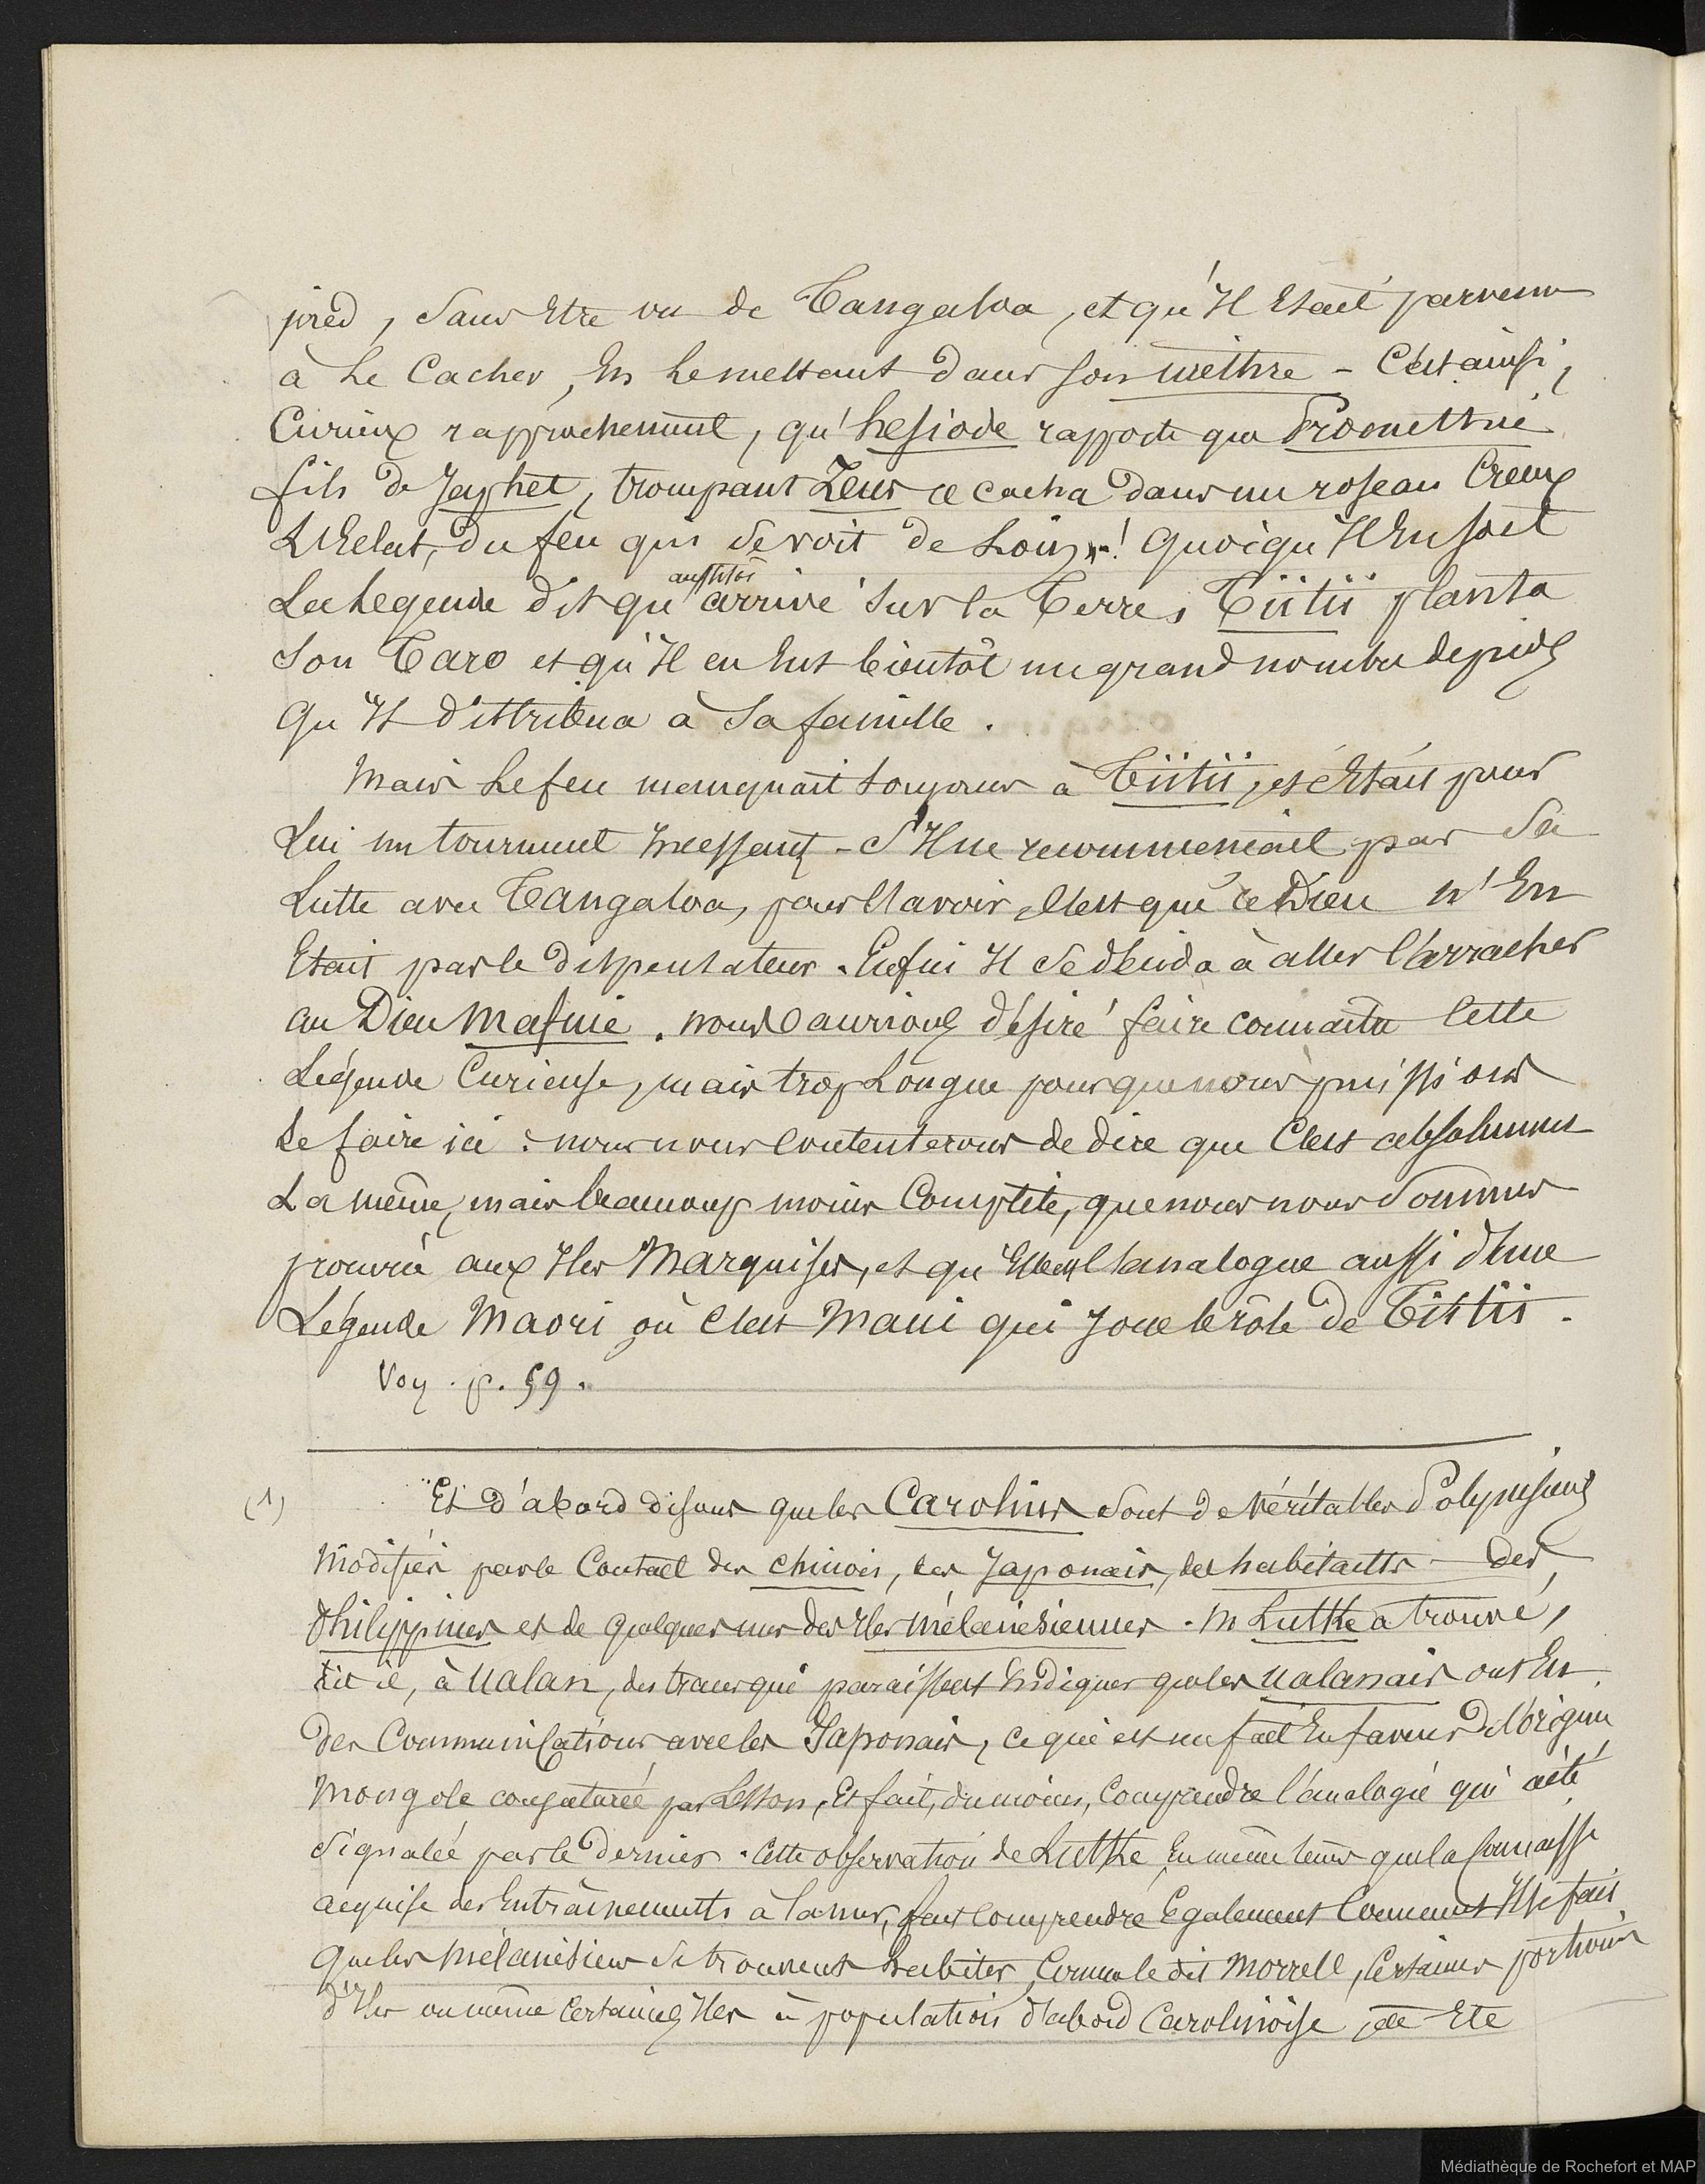 pied, sans Etre vu de Tangaloa, et qu'Il Etait parvenu
à Le Cacher, En Le mettant dans son mêthre - C'est ainsi,
Curieux rapprochement, qu'hesiode rapporte que Promethée
fils de Japhet, trompant Zeus cacha dans un roseau Creux
L'Eclat, du feu qui se voit de Loin! quoiqu'Il En soit
La Legende dit qu'aussitôt arrivé sur la Terre, Tiitii planta
son Taro et qu'Il en Eut bientôt un grand nombre de pieds
qu'Il distribua à sa famille.
Mais Le feu manquait toujours à Tiitii, et c'Etait pour
Lui un tourment Incessant - S'Il ne recommençait pas sa
Lutte avec Tangaloa, pour l'avoir, c'est que ce Dieu n'En
Etait pas le dispensateur. Enfin Il se décida à aller l'arracher
au Dieu Mafuie. nous aurions désiré faire connaître cette
Légende Curieuse, mais trop Longue pour que nous puissions
Le faire ici : nous nous contenterons de dire que C'est absolument
La même, mais beaucoup moins Complète, que nous nous sommes
procuré aux Iles Marquises, et qu'Elle est l'analogue aussi d'une
Légende Maori où c'est Maui qui Joue le rôle de Tiitii.
Voy. p. 59.
(1) Et d'abord disons que les Carolins sont de véritables Polynésiens
Modifiés par le Contact des chinois, des Japonais, des habitants des
Philippines et de quelques unes des Iles mélanésiennes. M Lutke a trouvé,
dit il, à Ualan, des traces qui paraissent Indiquer que les Ualanais ont Eu
des Communications avec les Japonais, ce qui est un fait En faveur de l'origine
Mongole conjecturée par Lesson, Et fait, du moins, Comprendre l'analogie qui a été
signalée par le dernier. Cette observation de Lutke, En même tems que la connaisse
acquise des Entraînements à la mer, fait comprendre Egalement Comment Il se fait
que les mélanésiens se trouvent habiter, Comme le dit Morrell, Certaines portions
d'Iles ou même Certaines Iles à population d'abord Carolinoise, été Ete